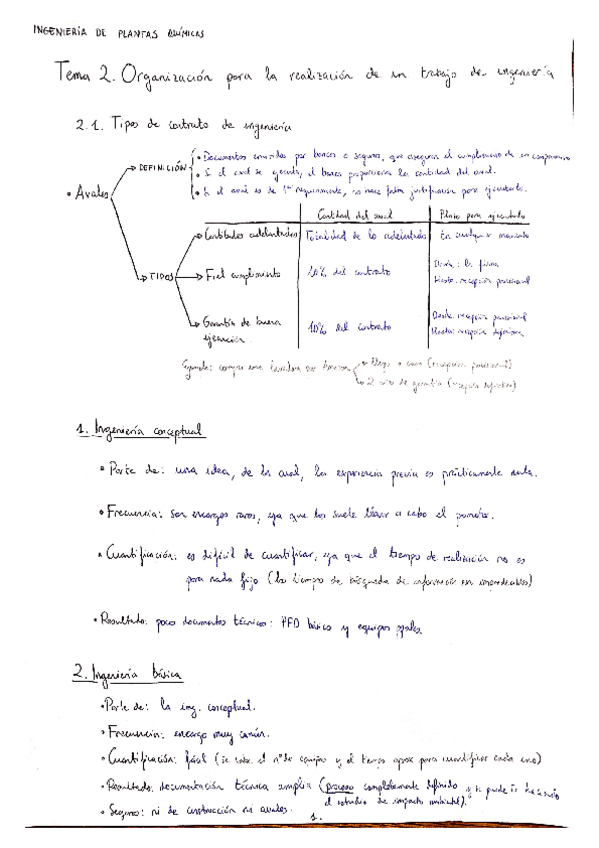 INGENIERÍA DE PLANTAS QUÍMICAS
Tema 2. Organización para la realización de un trabajo de ingeniería
2.1. Tipos de contrato de ingeniería
• Avales
DEFINICIÓN
• Documentos emitidos por bancos o seguros, que aseguran el cumplimiento de un compromiso
• Si el aval se ejecuta, el banco proporciona la cantidad del aval.
• Si el aval es de 1er requerimiento, no hace falta justificación para ejecutarlo.
TIPOS
Cantidad del aval | Plazo para ejecutarlo
Cantidades adelantadas | Totalidad de lo adelantado | En cualquier momento
Fiel cumplimiento | 10% del contrato | Desde: la firma
Hasta: recepción provisional
Garantía de buena ejecución | 10% del contrato | Desde: recepción provisional
Hasta: recepción definitiva
Ejemplo: compro una lavadora por Amazon
Llega a casa (recepción provisional)
2 años de garantía (recepción definitiva)
1. Ingeniería conceptual
• Parte de: una idea, de la cual, la experiencia previa es prácticamente nula.
• Frecuencia: son encargos raros, ya que los suele llevar a cabo el promotor.
• Cuantificación: es difícil de cuantificar, ya que el tiempo de realización no es
para nada fijo (los tiempos de búsqueda de información son impredecibles)
• Resultado: pocos documentos técnicos: PFD básico y equipos ppales.
2. Ingeniería básica
• Parte de: la ing. conceptual.
• Frecuencia: encargo muy común.
• Cuantificación: fácil (se sabe el nº de equipos y el tiempo aprox para cuantificar cada uno)
• Resultado: documentación técnica amplia (proceso completamente definido y se puede
el estudio de impacto ambiental).
• Seguros: ni de construcción ni avales.
1.